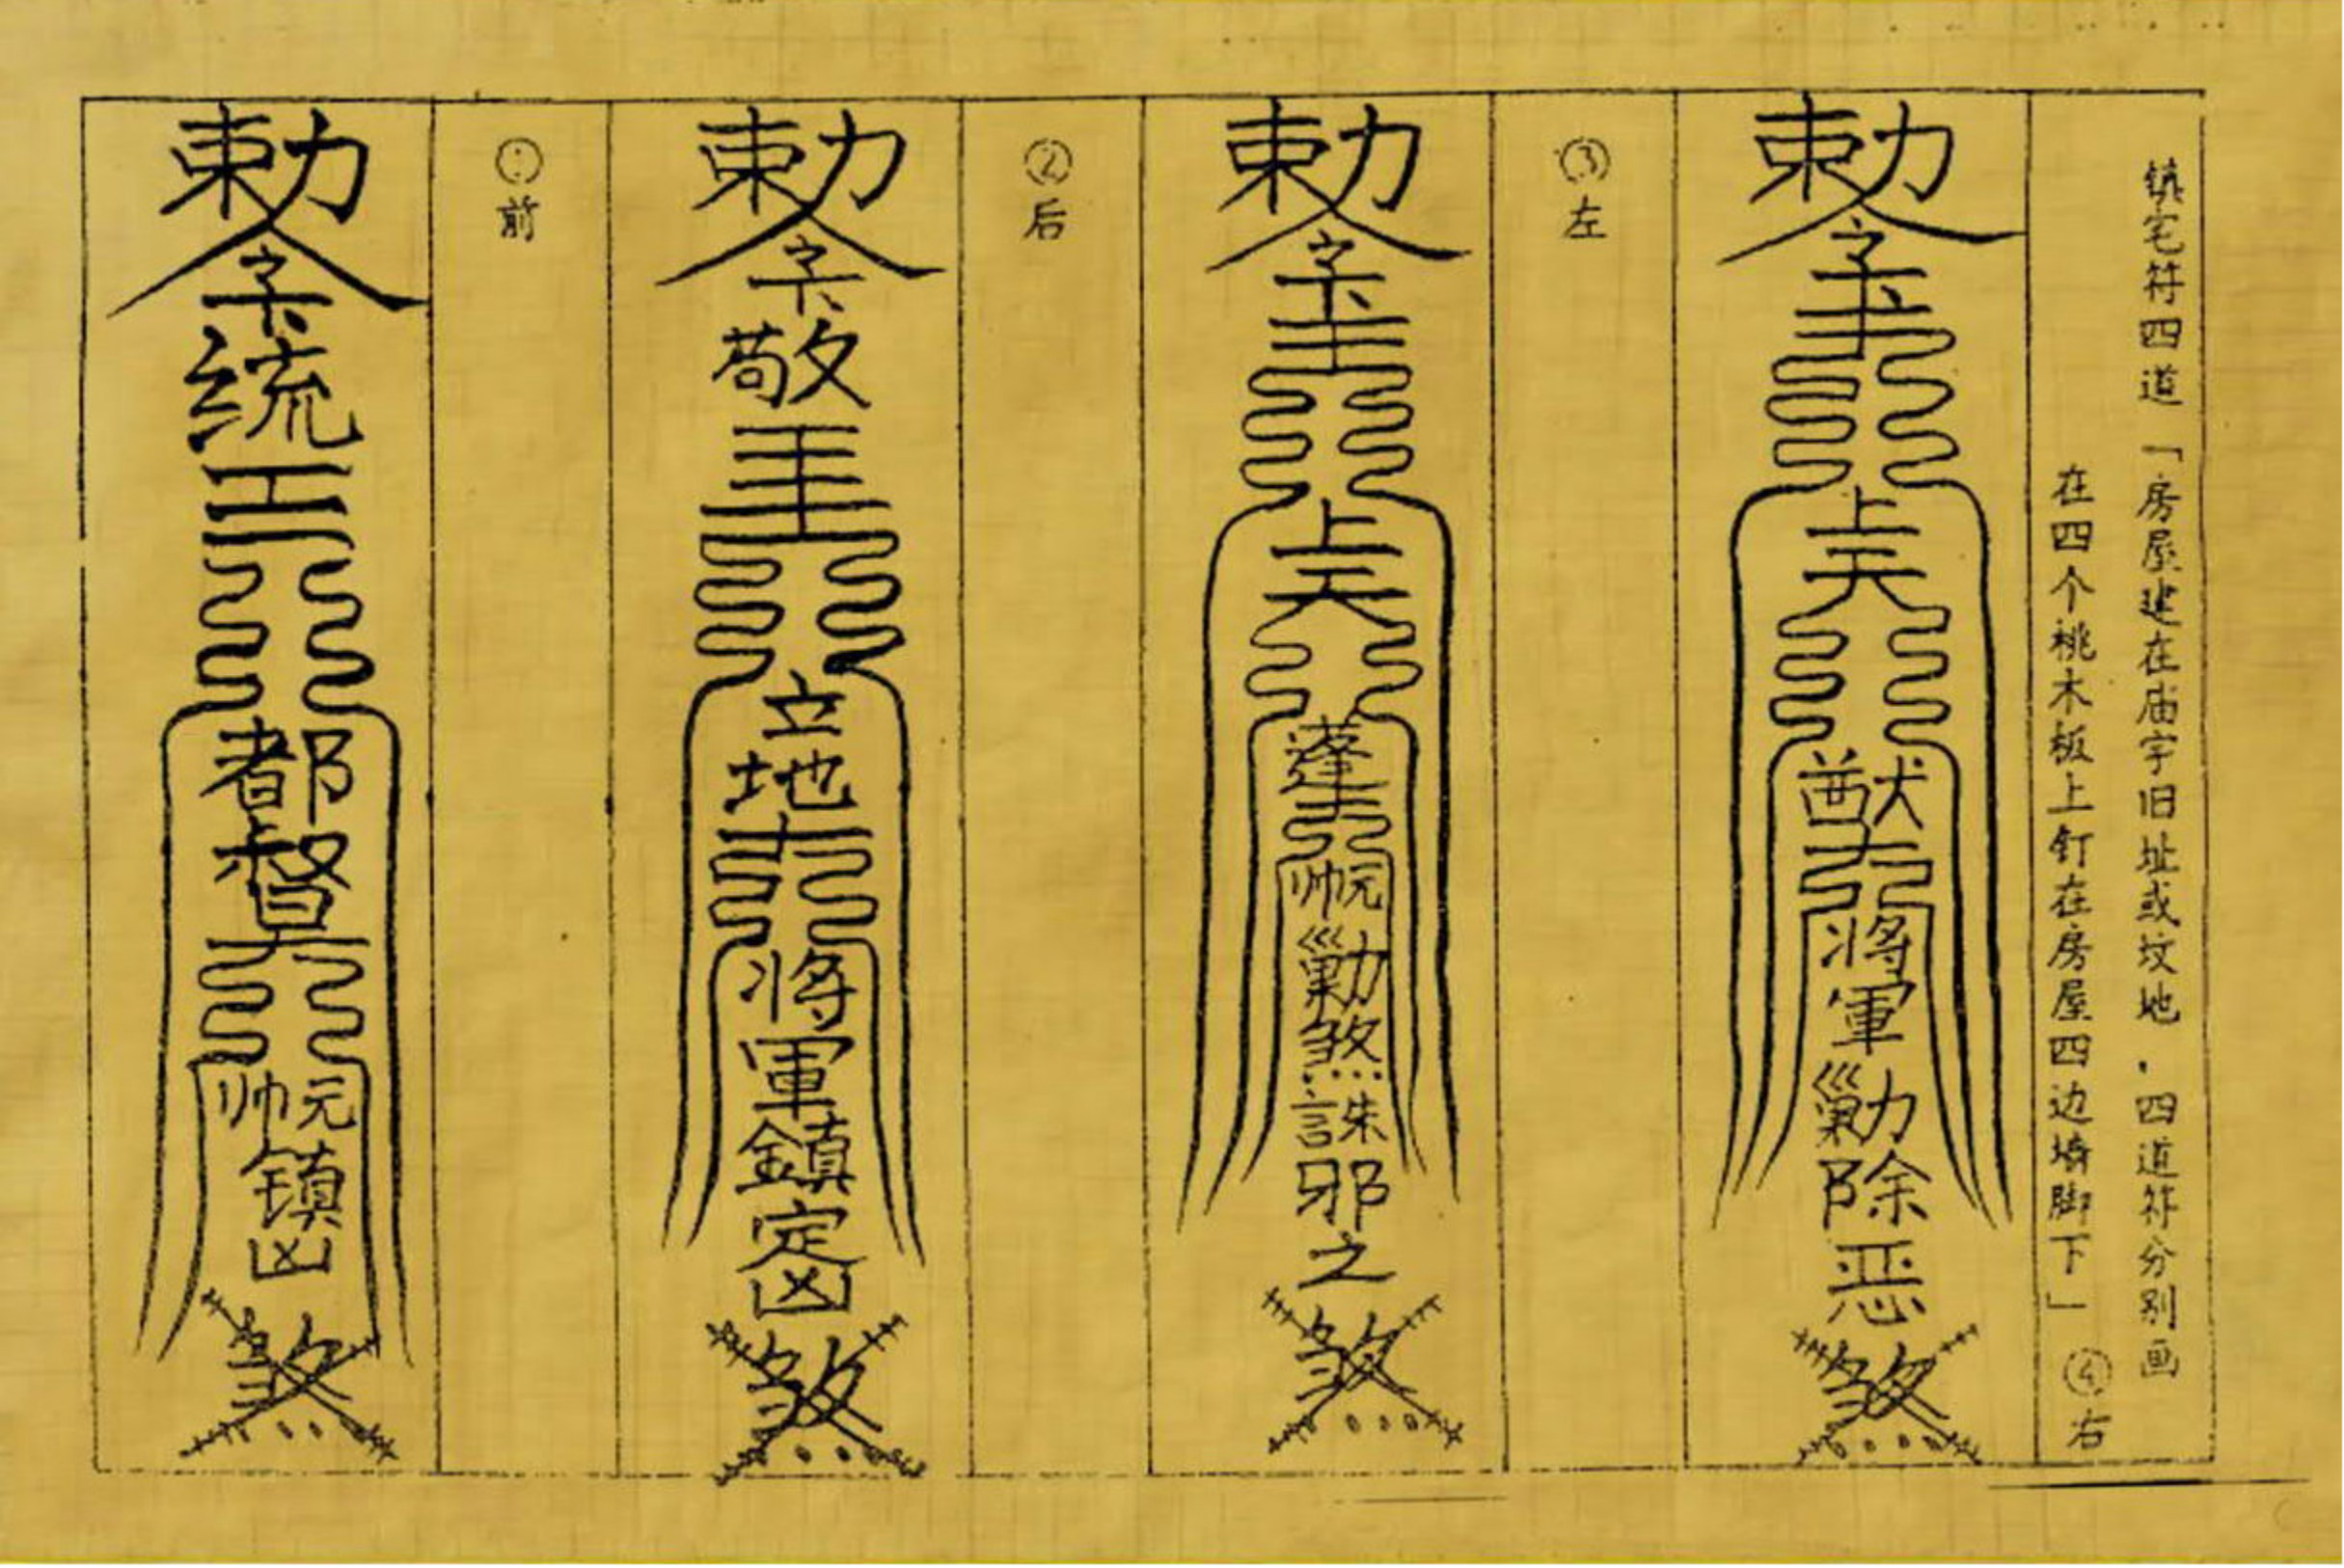 镇宅符四道「房屋建在庙宇旧址或坟地．四道符分别画
在四个桃木板上钉在房屋四边墙脚下」④右
勅令
上天
猷
将軍
勦除恶
煞
③左
勅令
上天
蓬
帅元
勦煞
誅邪之
煞
②后
勅令
敬
立地
将軍
鎮定凶
煞
①前
勅令
统
都督
帅元
镇凶
煞